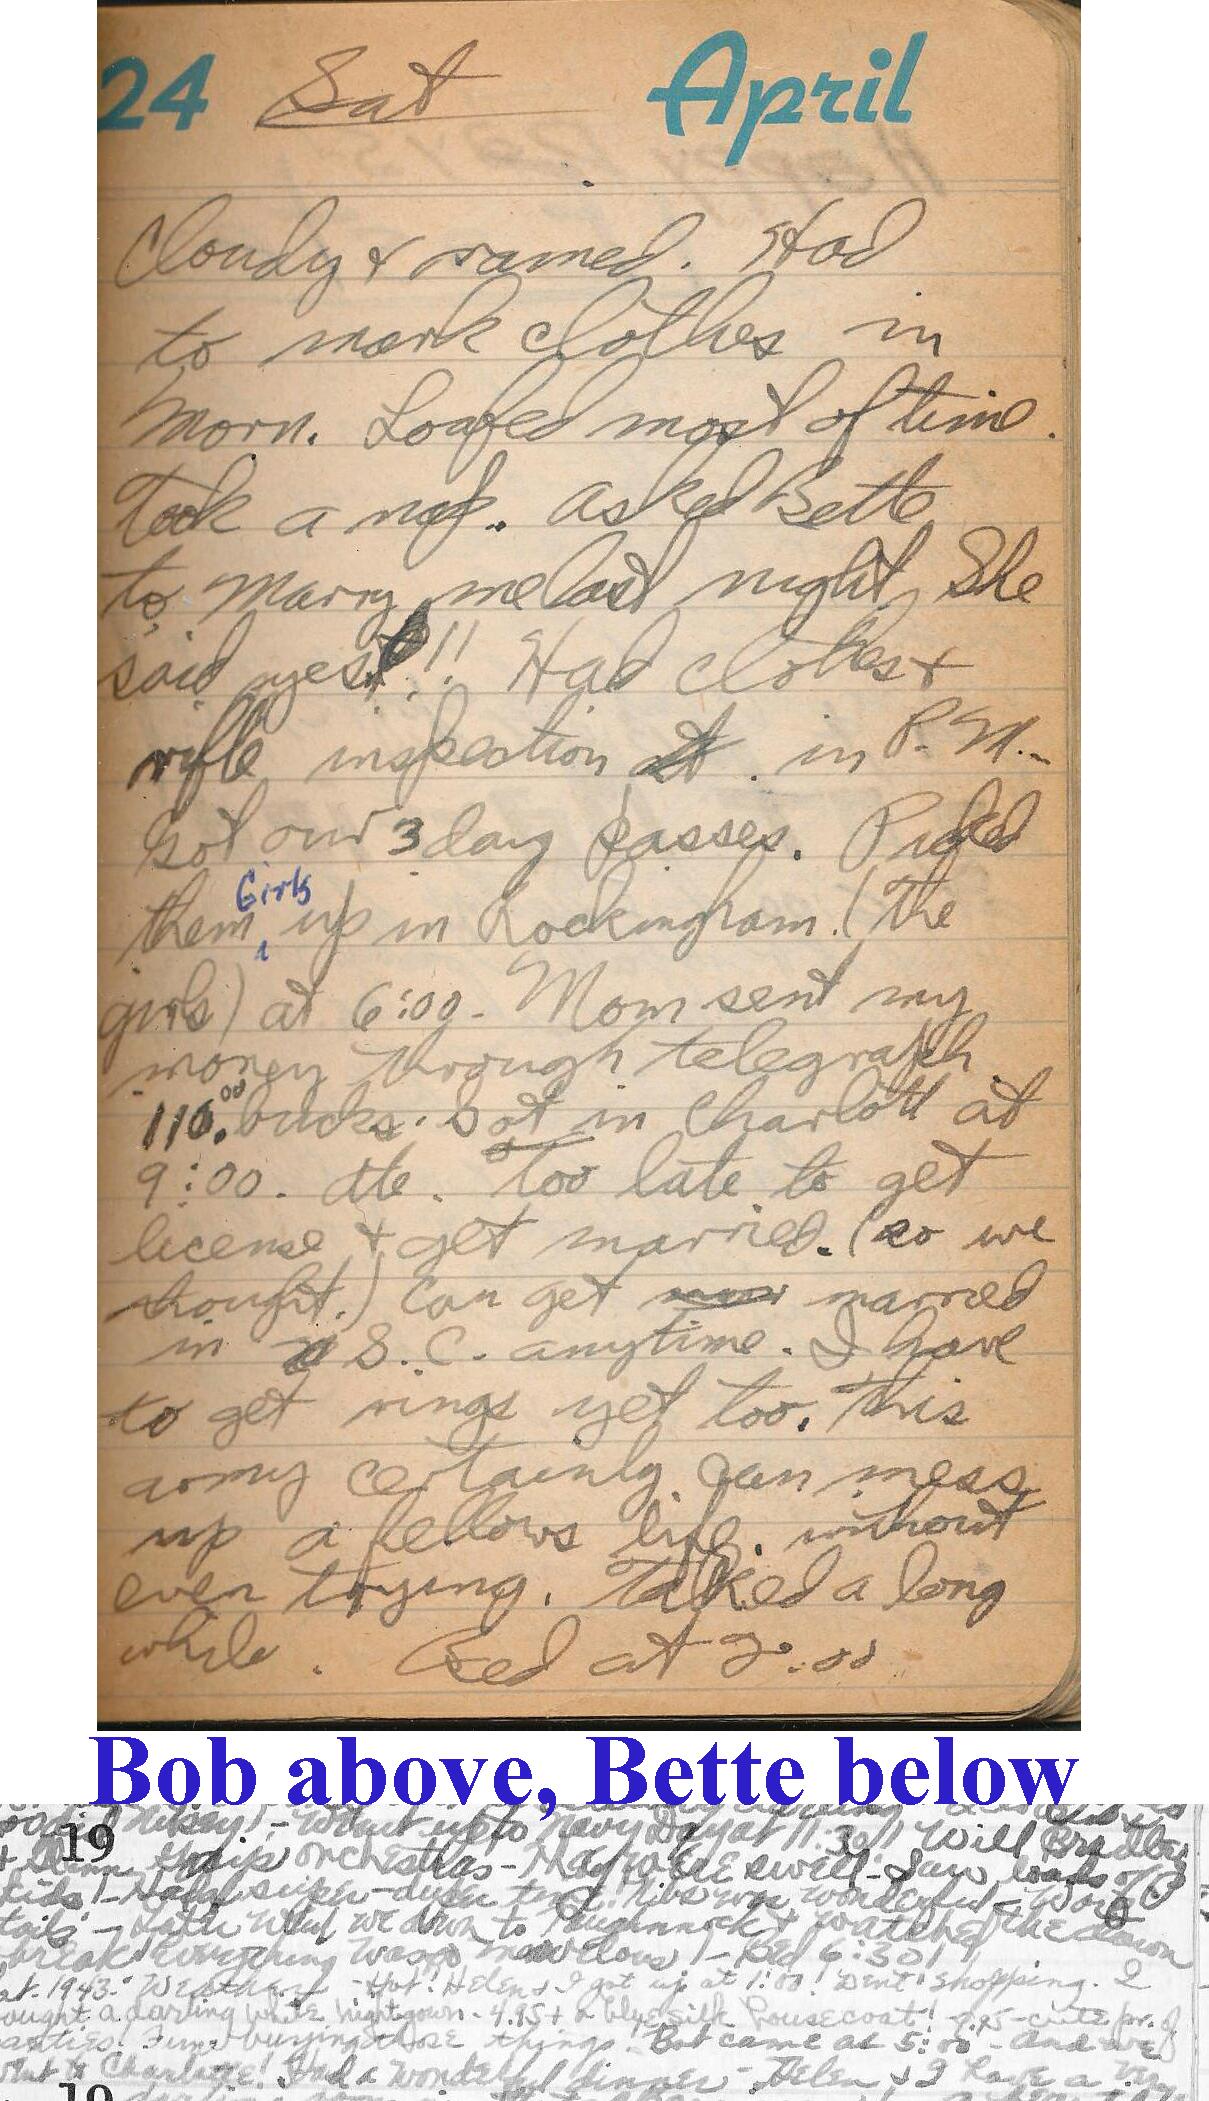 24 Sat April
Cloudy & rained. Had
to mark clothes in
morn. Loafed most of time.
Took a nap. Asked Bette
to marry me last night, She
said yes!!! Had clothes &
rifle inspection in P.M..
Got our 3 day passes. Picked
Girls
them up in Rockingham. (The
girls) at 6:00. Mom sent my
money through telegraph.
110.00 bucks. Got in Charlott at
9:00. Ate. Too late to get
license & get married. (so we
thought.) Can get married
in S. C. anytime. I have
to get rings yet too. This
army certainly can mess
up a fellows life without
even trying. Talked a long
while. Bed at 2:00
Bob above, Bette below
19 Mikey! - Went up to Navy Day at 11:30!! Will Bradley
orchestras - swell - Saw loads of
kids! - Had super-duper time. wonderful - Wore
tails - Later we down to & watched the dawn
break! Everything was marvelous! - Bed 6:30!!
1943: Weather - Hot! Helen & I got up at 1:00! Went shopping. I
bought a darling white nightgown - 4.95 + a blue silk housecoat! 7.95 - cute for. I
Fun buying those things! Bob came at 5:00 - and we
went to Charlotte! Had a wonderful dinner - Helen & I have a
19